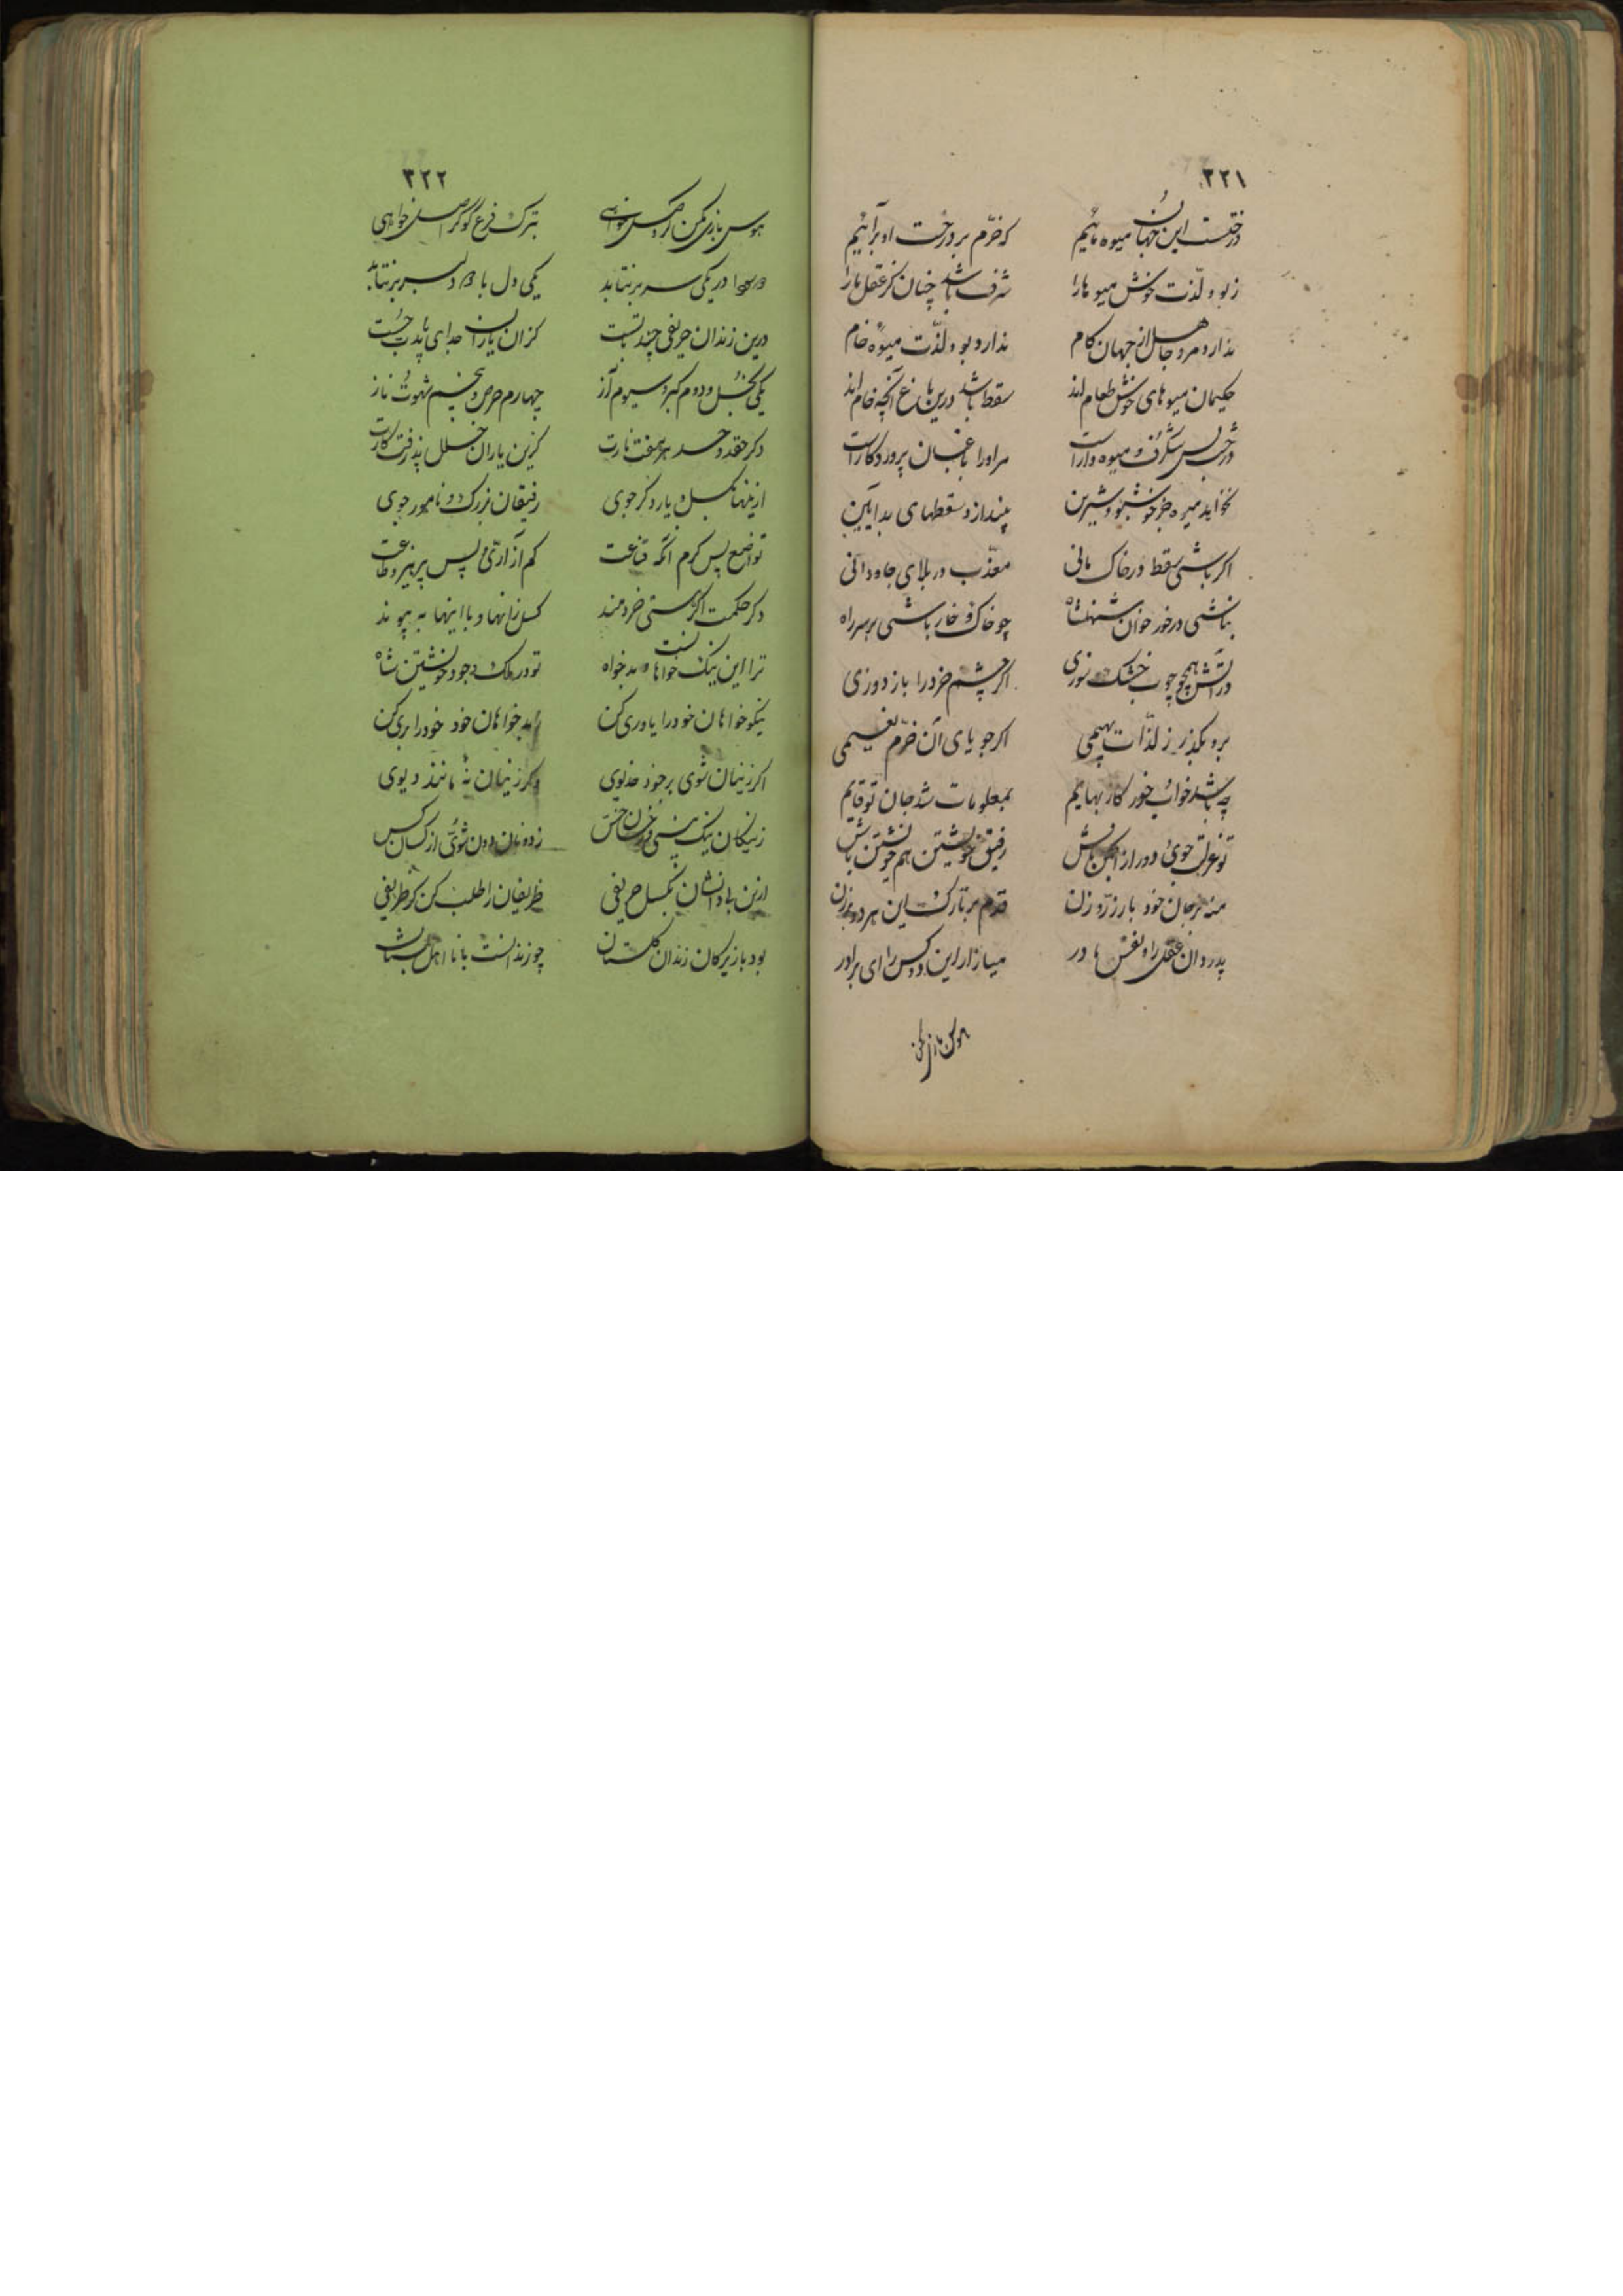 ۳۲۱
درختست این جهان و میوه مائیم که خرّم بر درخت او برآئیم
ز بو و لذّت خوش میوها را شرف باشد چنان کز عقل ما را
ندارد مرد جاهل از جهان کام ندارد بو و لذّت میوهٔ خام
حکیمان میوهای خوش طعام اند سقط باشد درین باغ آنچه خام اند
درخت بس شگرف و میوه دار است مر او را باغبان پروردگار است
نخواهد میوه جز خوشبو و شیرین بیندازد سقطهای بد آیین
اگر باشی سقط در خاک مانی معذّب در بلای جاودانی
نباشی در خور خوان شهنشاه چو خاک و خار باشی بر سر راه
در آتش همچو چوب خشک سوزی اگر چشم خرد را باز دوزی
برو بگذر ز لذّات بهیمی اگر جویای آن خرّم نعیمی
چه باشد خواب و خور کار بهایم بمعلومات شد جان تو قایم
تو عزلت جوی و دور از انجمن باش رفیق خویشتن هم خویشتن باش
منه بر جان خود بار زر و زن قدم بر تارک این هر دو بر زن
پدر دان عقل را و نفس مادر میازار این دو کس را ای برادر
هوس بازی مکن
۳۲۲
هوس بازی مکن گر وصل خواهی بترک فرع گو گر اصل خواهی
دو سودا در یکی سر بر نتابد یکی دل با دو دلبر بر نتابد
درین زندان حریفی چند با تست کز آن یاران جدایی بایدت جست
یکی بخل و دوم کبر و سیوم آز چهارم حرص و پنجم شهوت و ناز
دگر حقد و حسد هر هفت یارت کزین یاران خلل پذرفت کارت
ازینها بگسل و یار دگر جوی رفیقان بزرگ و نامور جوی
تواضع پس کرم آنگه قناعت کم آزاری و پس پرهیز و طاعت
دگر حکمت اگر هستی خردمند گسل زانها و با اینها بپیوند
ترا این نیک خواه آنست بدخواه تو در ملک وجود خویشتن شاه
نیکو خواهان خود را یاوری کن ز بد خواهان خود خود را بری کن
اگر زینهان شوی بر خود خدیوی وگر زینهان نهٔ مانند دیوی
ز نیکان نیک باشی وز خسان خس ز دونان دون شوی از ناکسان کس
ازین بد دانشان بگسل حریفی ظریفان را طلب کن گر ظریفی
بود با زیرکان زندان گلستان چو زندانست با نا اهل بستان